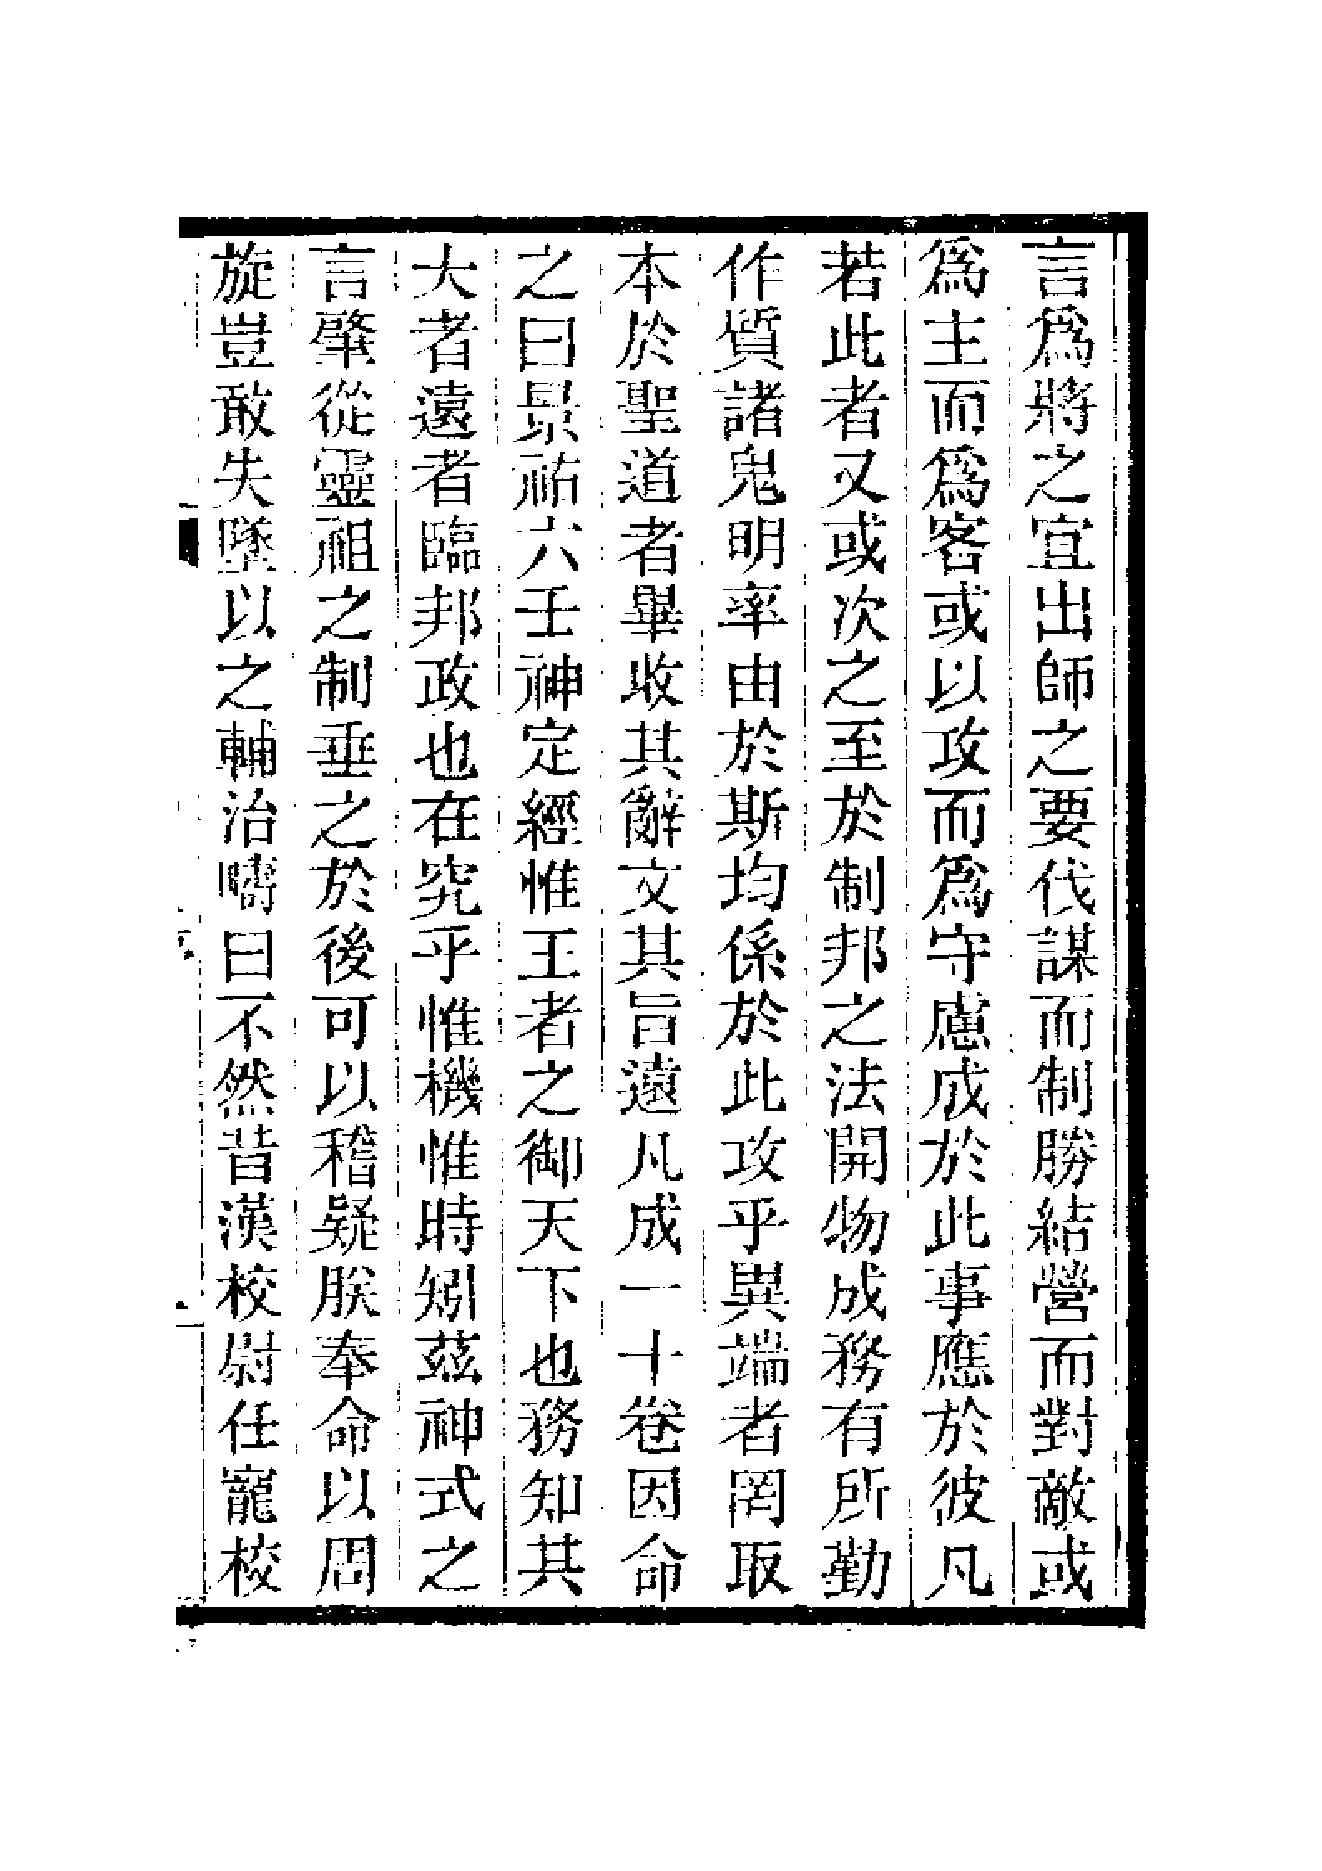 言爲將之宜出師之要伐謀而制勝結營而對敵或
爲主而爲客或以攻而爲守慮成於此事應於彼凡
若此者又或次之至於制邦之法開物成務有所勤
作質諸鬼明率由於斯均係於此攻乎異端者罔取
本於聖道者畢收其辭文其旨遠凡成一十卷因命
之曰景祐六壬神定經惟王者之御天下也務知其
大者遠者臨邦政也在究乎惟機惟時矧茲神式之
言肇從靈祖之制垂之於後可以稽疑朕奉命以周
旋豈敢失墜以之輔治疇曰不然昔漢校尉任寵校